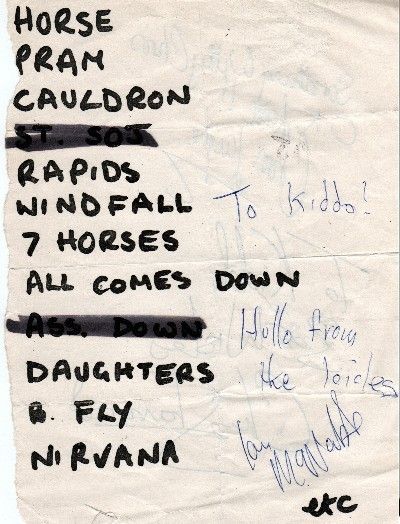 HORSE
PRAM
CAULDRON
ST. SOJ
RAPIDS
WINDFALL To Kiddo!
7 HORSES
ALL COMES DOWN
ASS. DOWN Hullo from
DAUGHTERS the Icicles
B. FLY Ian
NIRVANA McNabb
etc